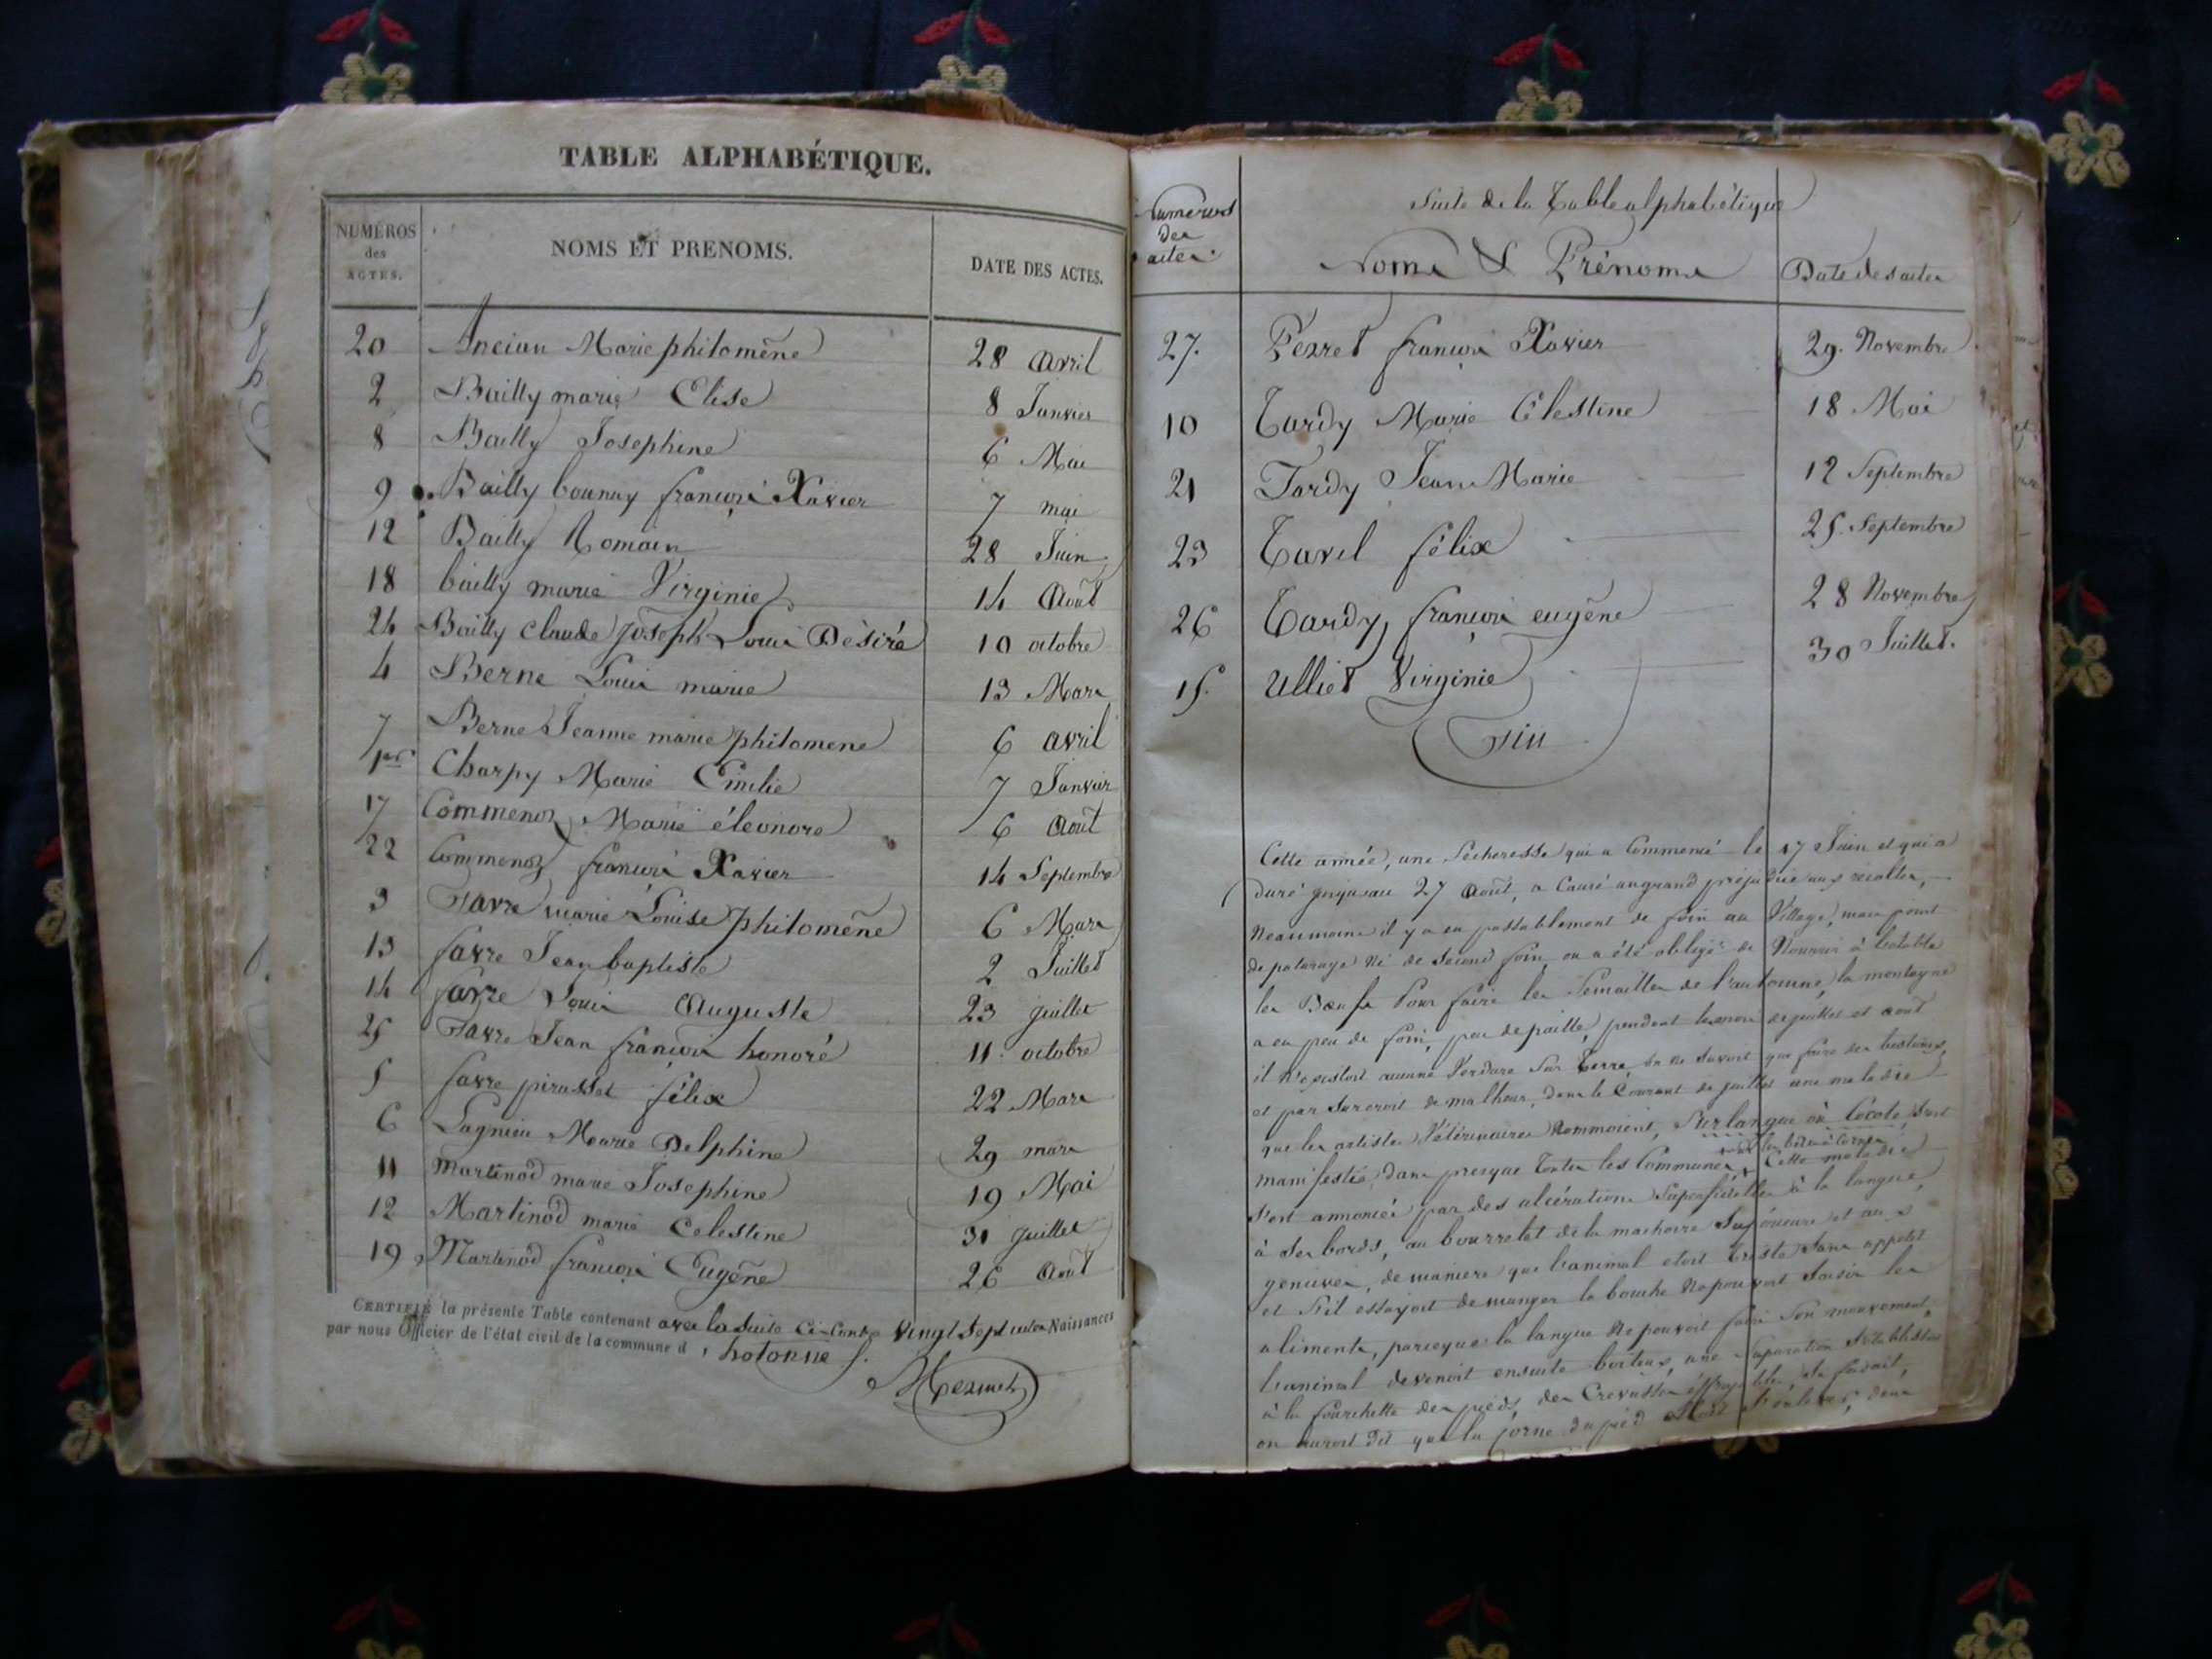 TABLE ALPHABÉTIQUE.
NUMÉROS des ACTES.
NOMS ET PRENOMS.
DATE DES ACTES.
20 Ancian Marie philomène 28 Avril
2 Bailly marie Elise 8 Janvier
8 Bailly Josephine 6 Mai
9 Bailly bounay françois Xavier 7 mai
12 Bailly Romain 28 Juin
18 bailly marie Virginie 14 Août
24 Bailly Claude joseph Louis Désiré 10 octobre
4 Berne Louis marie 13 Mars
7 Berne Jeanne marie philomene 6 avril
1er Charpy Marie Emilie 7 Janvier
17 Commenoz Marie éléonore 6 Août
22 Commenoz françois Xavier 14 Septembre
3 Favre marie Louise philomène 6 Mars
13 favre Jean baptiste 2 Juillet
14 favre Louis Auguste 23 juillet
25 Favre Jean françois honoré 11 octobre
5 favre pirasset félix 22 Mars
6 Lagnieu Marie Delphine 29 mars
11 Martinod marie Josephine 19 Mai
12 Martinod marie Celestine 31 juillet
19 Martinod françois Eugène 26 Août
CERTIFIÉ la présente Table contenant avec la suite Ci-Contre Vingt Sept actes Naissances
par nous Officier de l'état civil de la commune d hotonne
Suite de la Table alphabétique
Numeros des actes
Noms & Prénoms
Date des actes
27. Pézret françois Xavier 29. Novembre
10 Tardy Marie Célestine 18 Mai
21 Tardy Jean Marie 12 Septembre
23 Tavel félix 25. Septembre
26 Tardy françois eugène 28 Novembre
15. Ulliet Virginie 30 Juillet.
Fin
Cette année, une Sécheresse qui a Commencé le 17 Juin et qui a
duré jusqu'au 27 Août, a Causé un grand préjudice aux récoltes,
Neaumoins il y a eu passablement de foin au Village, mais point
de paturage Ni de second foin, on a été obligé de Nourrir à l'étable
les Bœufs Pour faire les Semailles de l'automne, la montagne
a eu peu de foin, peu de paille, pendant les mois de juillet et aout
il N'existoit aucune Verdure Sur terre, on ne savoit que faire des bestiaux,
et par surcroit de malheur, dans le Courant de juillet une maladie
que les artistes Vétérinaires Nommoient, Surlangue où Cocote, s'est
manifestée, dans presque toutes les Communes, Cette maladie
s'est annoncée par des ulcérations Superficielles à la langue,
à ses bords, au bourrelet de la machoire Supérieure et aux
gencives, de maniere que l'animal etoit triste, Sans appetit
et S'il essayoit de manger la bouche Ne pouvoit Saisir les
aliments, parceque la langue Ne pouvoit faire Son mouvement,
l'animal devenoit ensuite boiteux, une Suparation S'etablissoit
à la fourchette des pieds, des Crevasses effroyables, Se faisoit,
on auroit dit que la corne du pied dans